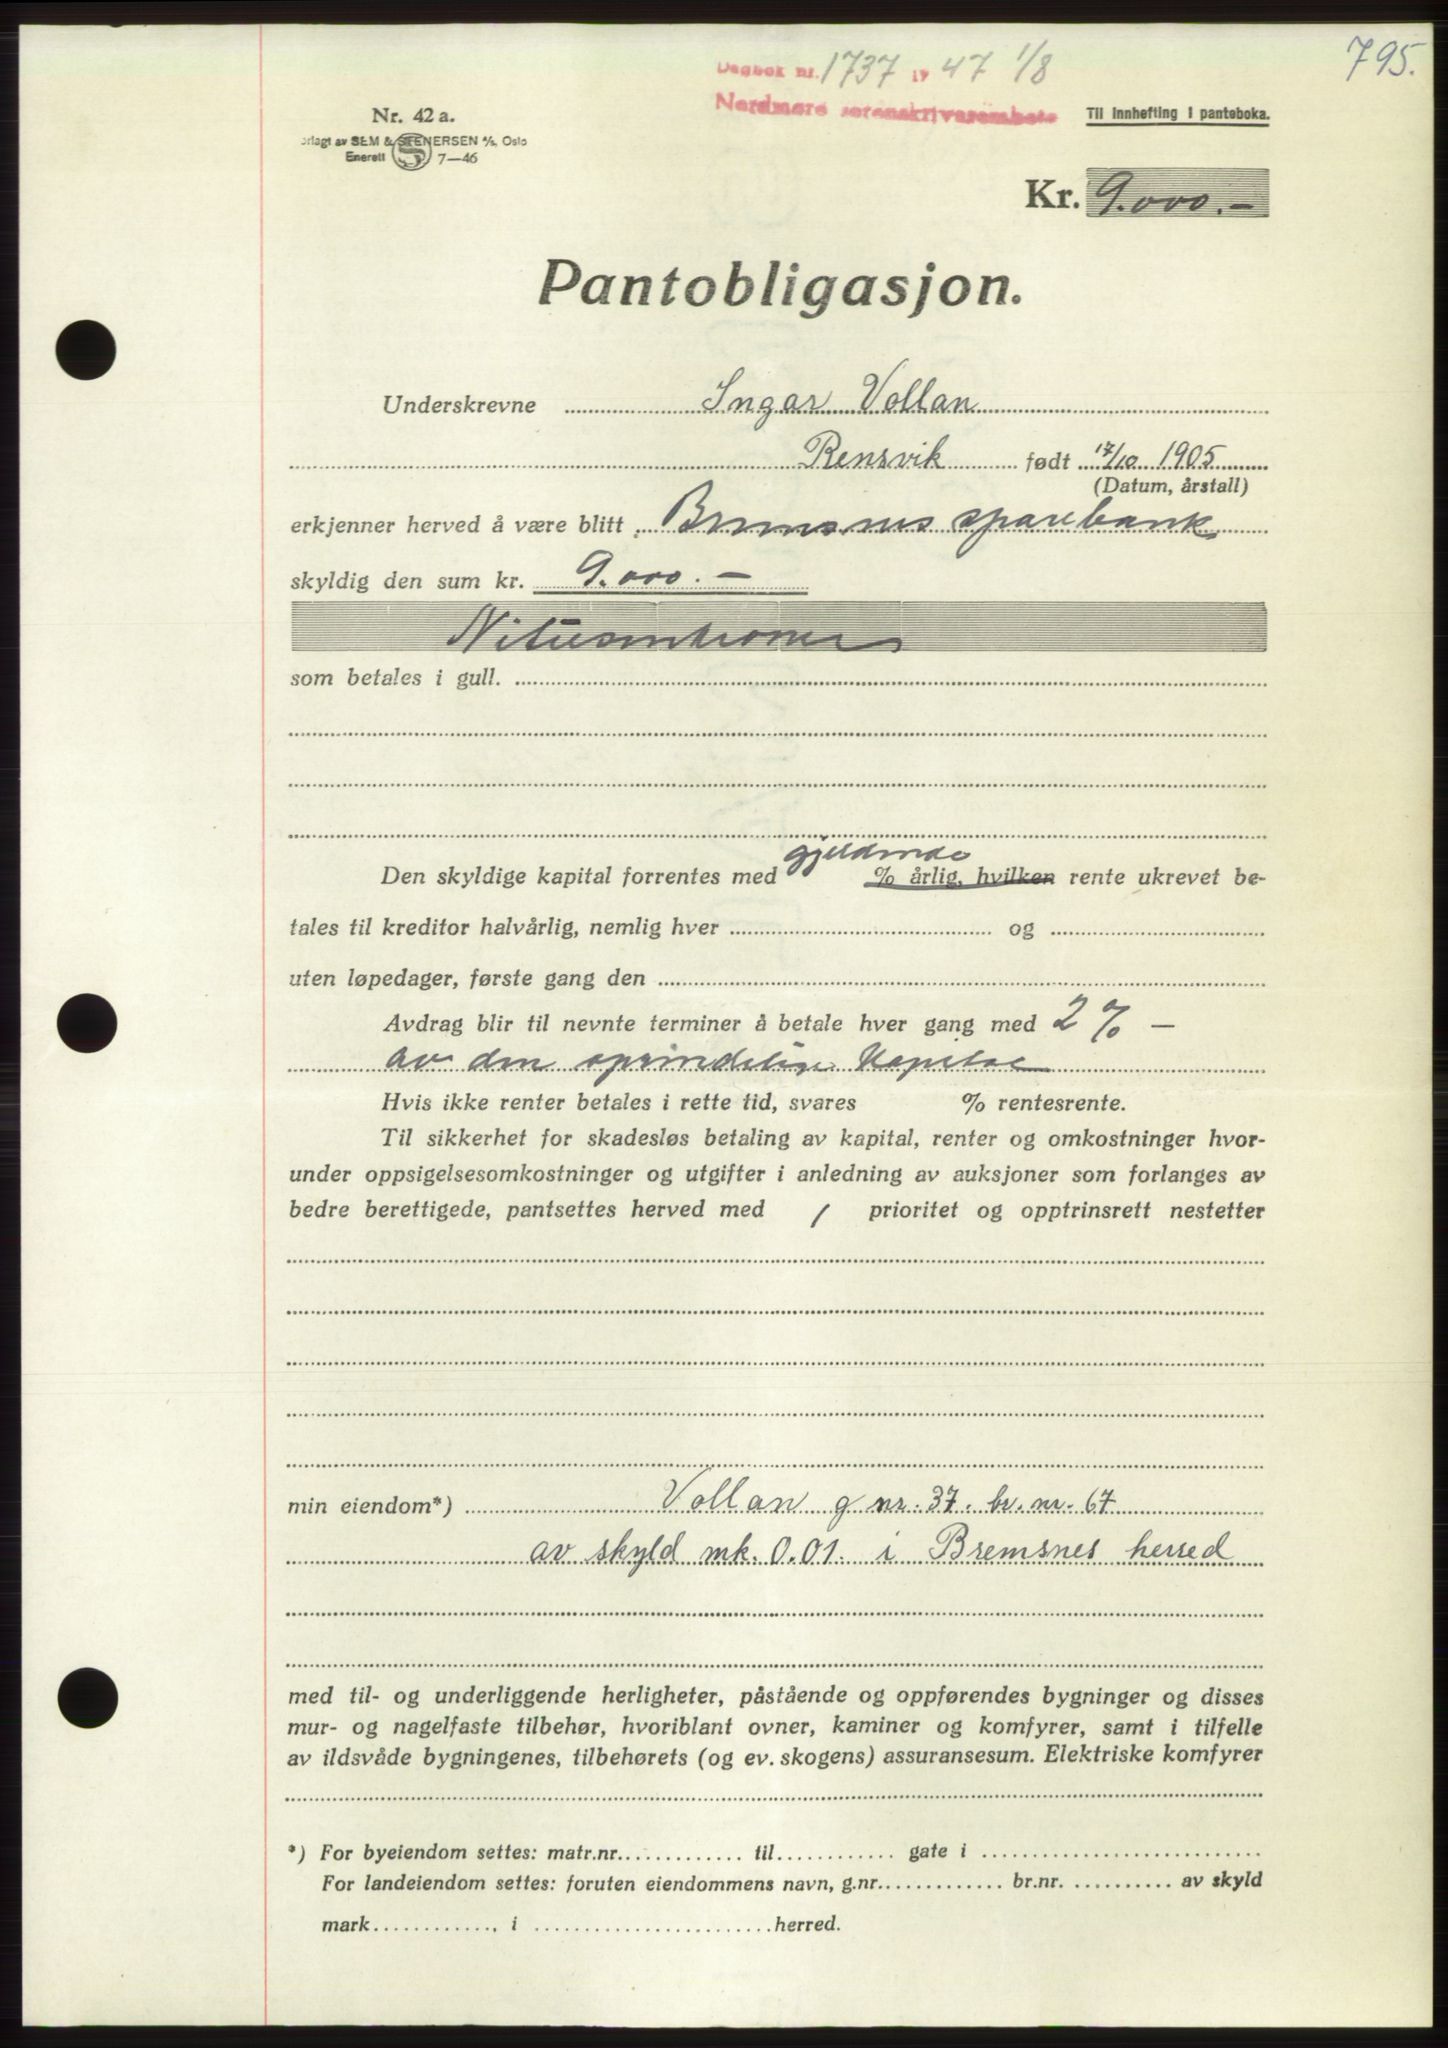 795.
Dagbok nr. 1737 19 47 1/8
Nordmøre sorenskriverembete
Til innhefting i panteboka.
Nr. 42 a.
orlagt av SEM & STENERSEN A/S, Oslo
Enerett 7—46
Kr. 9.000.-
Pantobligasjon.
Underskrevne Ingar Vollan
Rensvik født 17/10 1905
(Datum, årstall)
erkjenner herved å være blitt Bremsnes sparebank
skyldig den sum kr. 9.000.-
Nitusenkroner
som betales i gull.
gjeldende
Den skyldige kapital forrentes med % årlig, hvilken rente ukrevet be-
tales til kreditor halvårlig, nemlig hver og
uten løpedager, første gang den
Avdrag blir til nevnte terminer å betale hver gang med 2% -
av den oprindelige kapital
Hvis ikke renter betales i rette tid, svares % rentesrente.
Til sikkerhet for skadesløs betaling av kapital, renter og omkostninger hvor-
under oppsigelsesomkostninger og utgifter i anledning av auksjoner som forlanges av
bedre berettigede, pantsettes herved med 1 prioritet og opptrinsrett nestetter
min eiendom*) Vollan g nr. 37. br. nr. 67
av skyld mk. 0.01. i Bremsnes herred
med til- og underliggende herligheter, påstående og oppførendes bygninger og disses
mur- og nagelfaste tilbehør, hvoriblant ovner, kaminer og komfyrer, samt i tilfelle
av ildsvåde bygningenes, tilbehørets (og ev. skogens) assuransesum. Elektriske komfyrer
*) For byeiendom settes: matr.nr. til gate i
For landeiendom settes: foruten eiendommens navn, g.nr. br.nr. av skyld
mark , i herred.